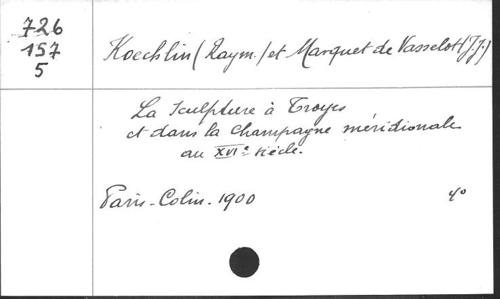 726
157
5
Koechlin (Raym.) et Marquet de Vasselot (J.J.)
La Sculpture à Troyes
et dans la Champagne méridionale
au XVIe siècle.
Paris - Colin - 1900
4o